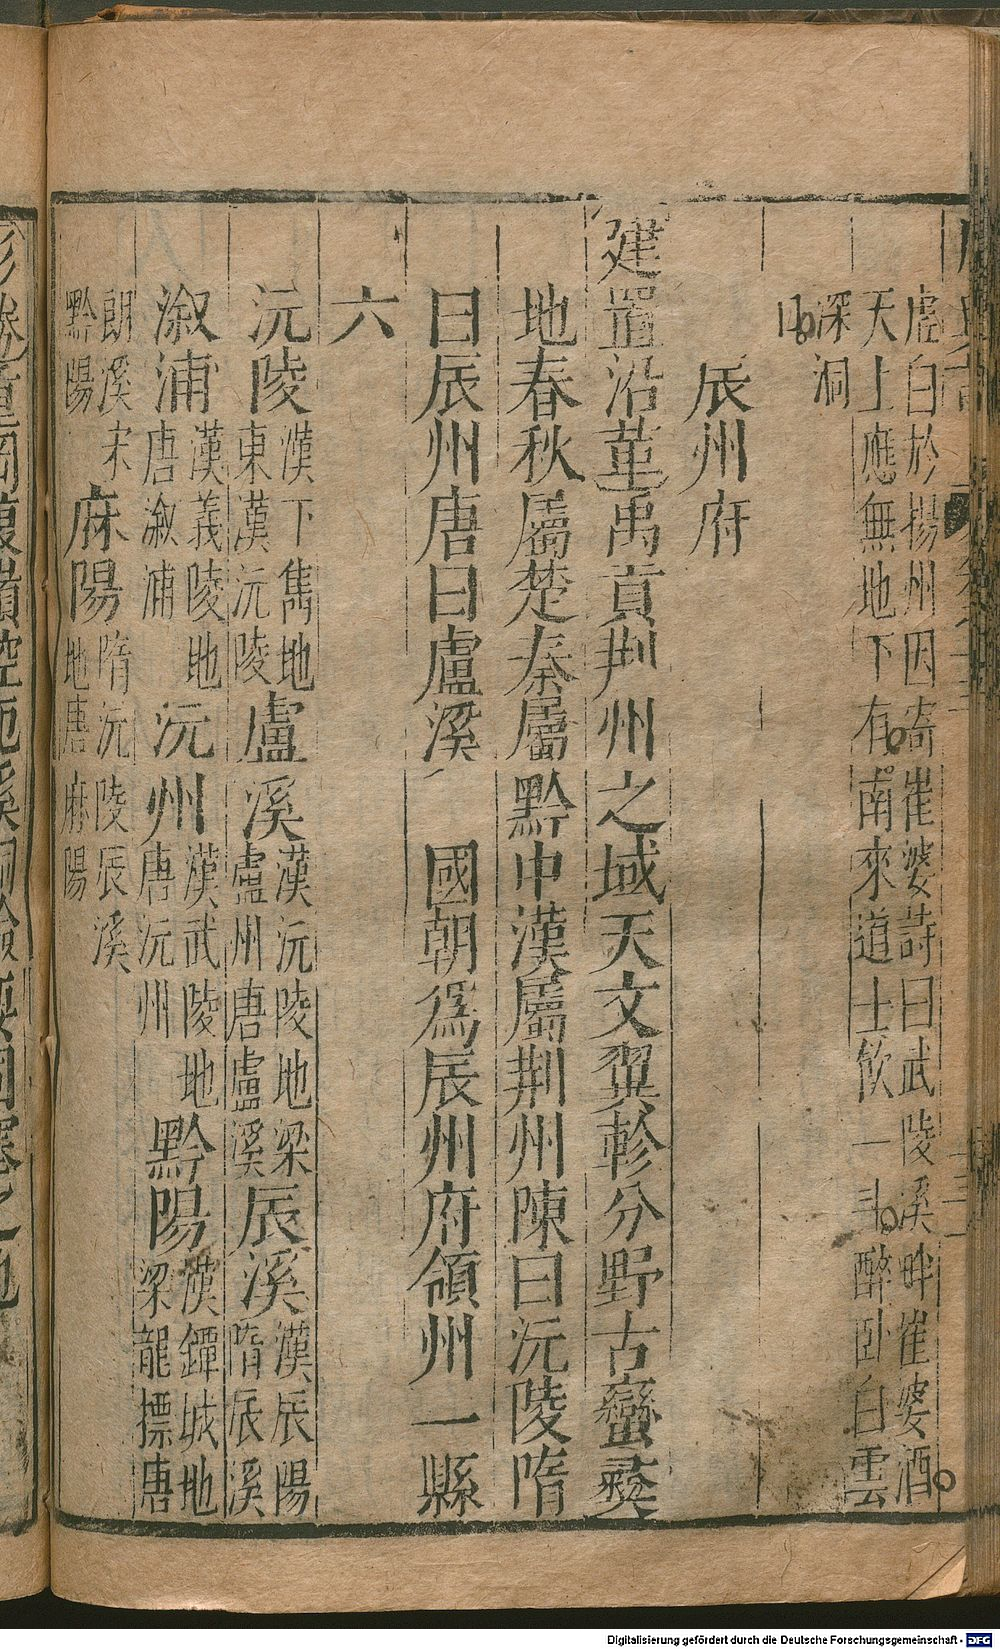 虛白於揚州因寄崔婆詩曰武陵溪畔崔婆酒
天上應無地下有南來道士飲一斗醉卧白雲
深洞
口
辰州府
建置沿革禹貢荆州之域天文翼軫分野古蠻彛
地春秋屬楚秦屬黔中漢屬荆州陳曰沅陵隋
曰辰州唐曰盧溪 國朝爲辰州府領州一縣
六
沅陵漢下雋地東漢沅陵盧溪漢沅陵地梁盧州唐盧溪辰溪漢辰陽隋辰溪
溆浦漢義陵地唐溆浦沅州漢武陵地唐沅州黔陽漢鐔城地梁龍摽唐
朗溪宋黔陽麻陽隋沅陵辰溪地唐麻陽
形勝重岡複嶺控扼溪洞險要固塞之地
Digitalisierung gefördert durch die Deutsche Forschungsgemeinschaft - DFG